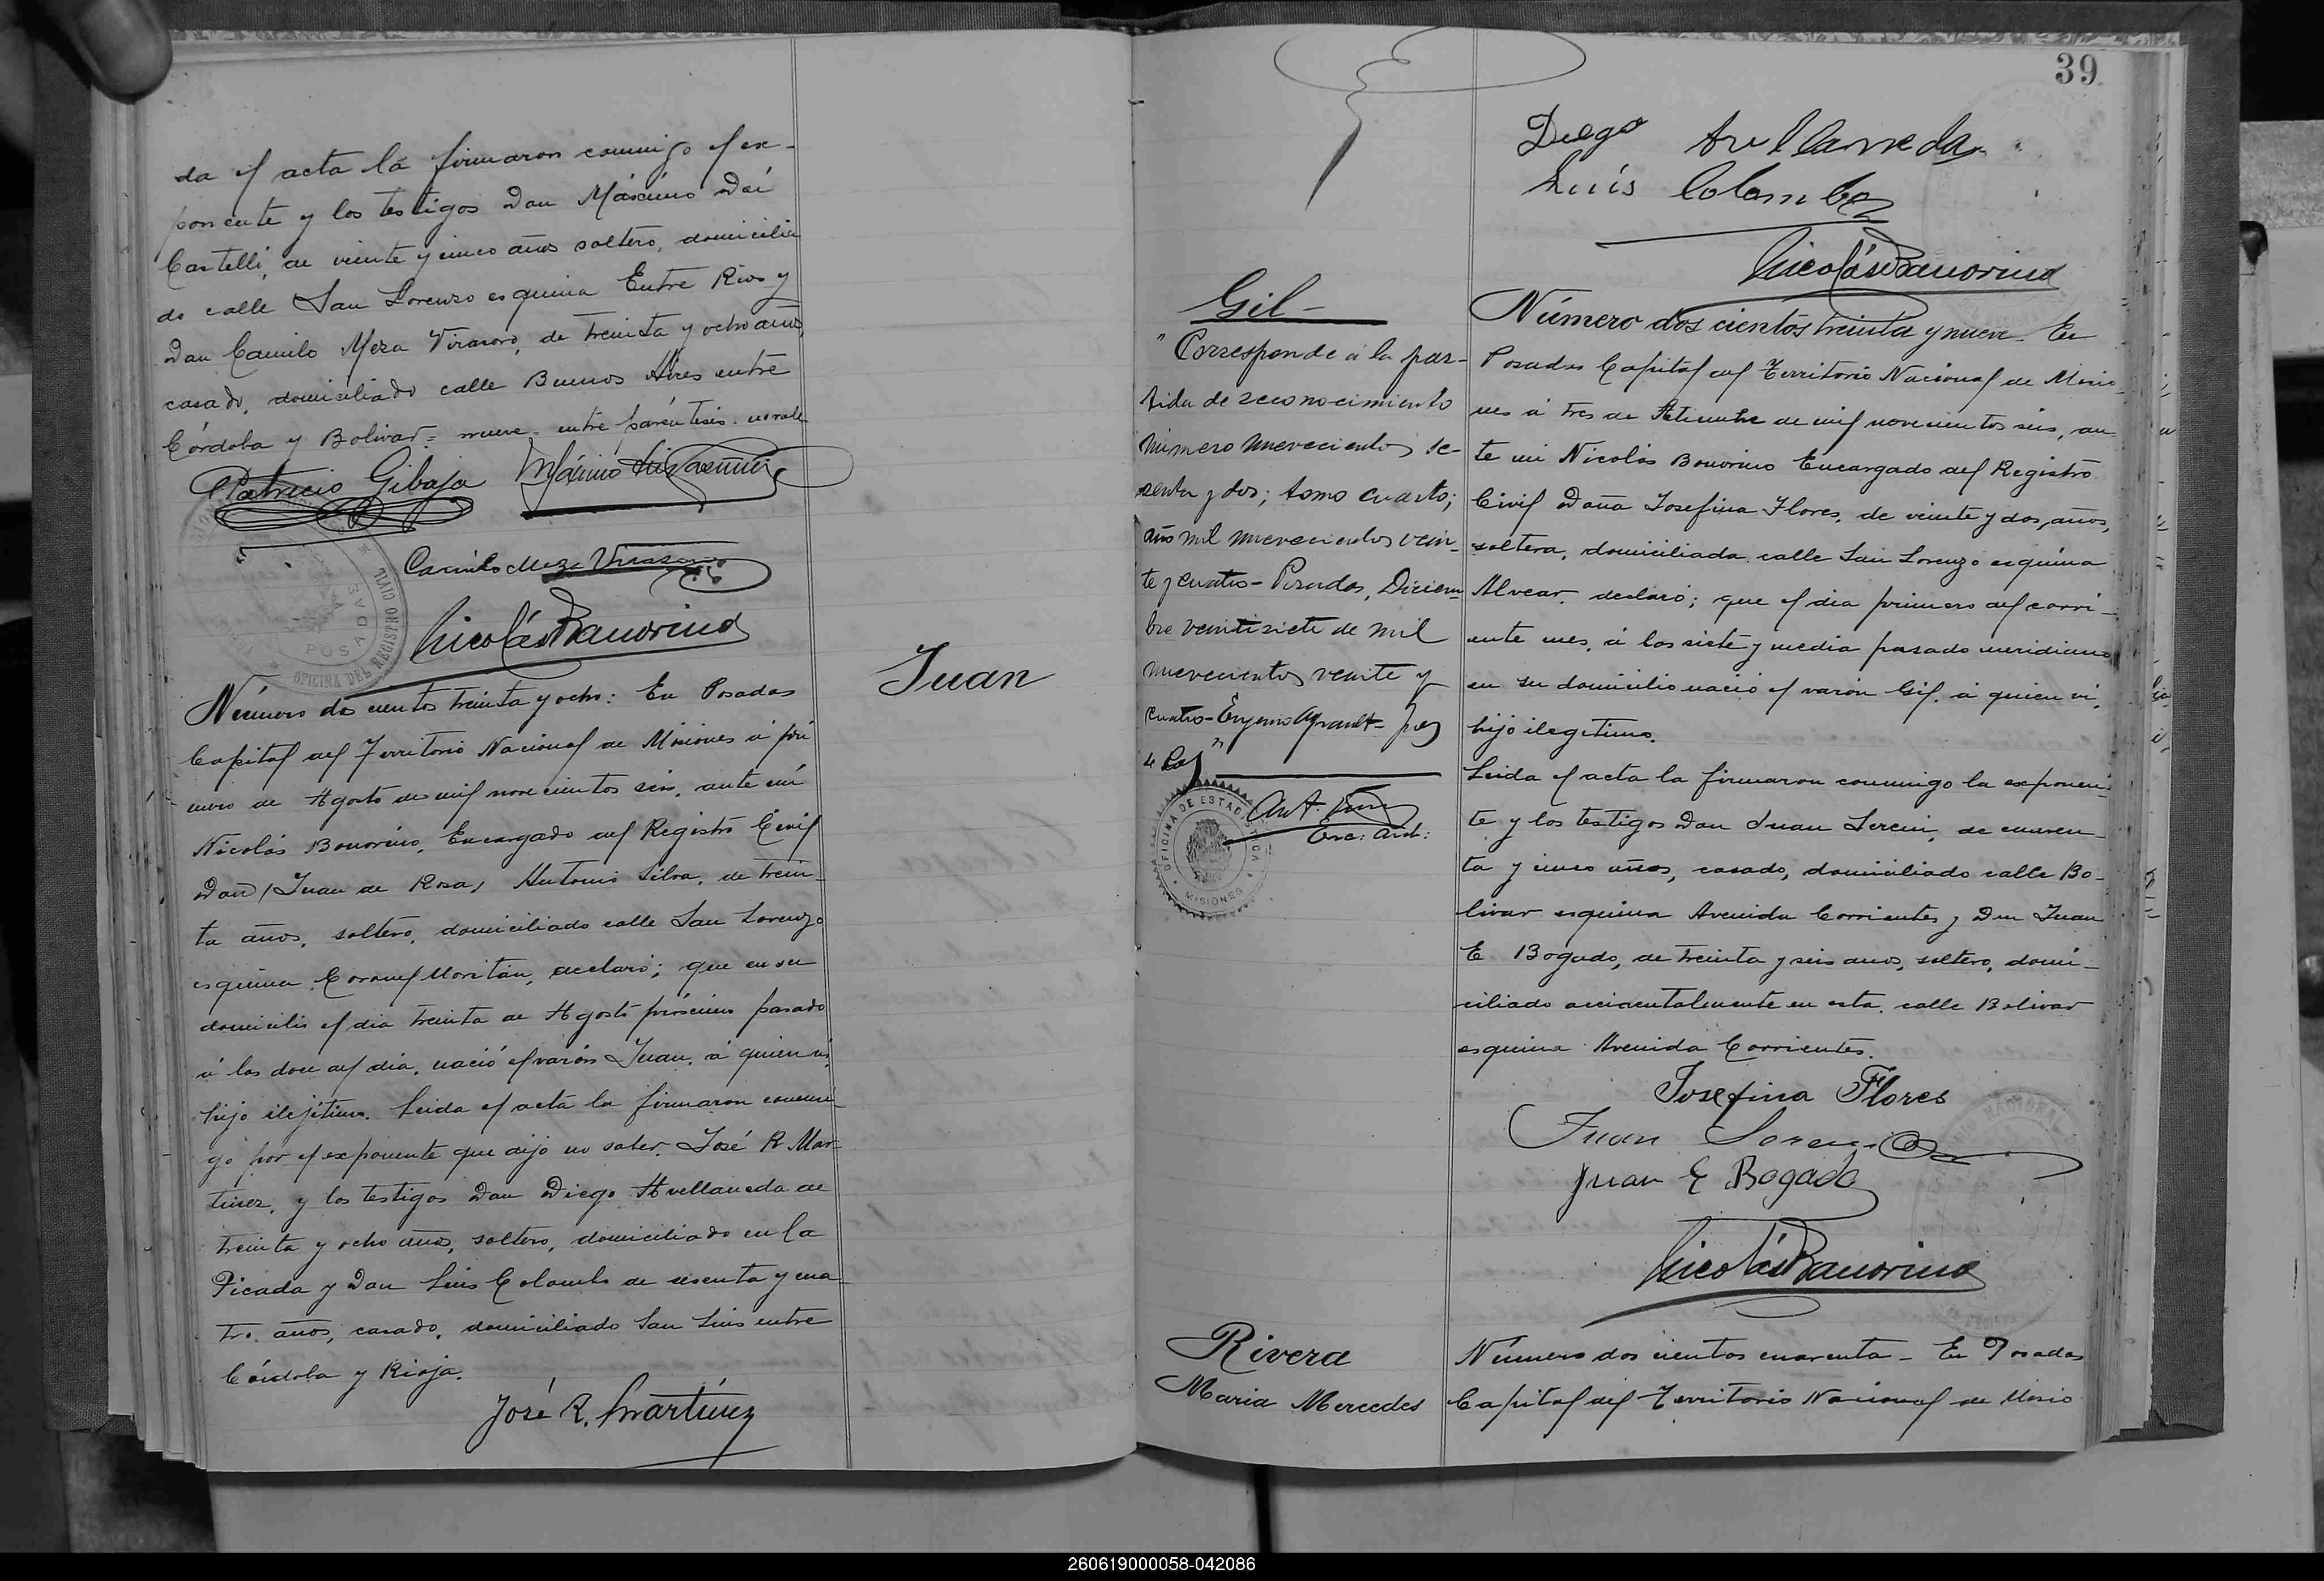 da el acta la firmaron conmigo el ex-
ponente y los testigos Don Máximo Dei
Castelli, de veinte y cinco años soltero, domicilia
do calle San Lorenzo esquina Entre Rios y
Don Camilo Meza Virasoro, de treinta y ocho años,
casado, domiciliado calle Buenos Aires entre
Córdoba y Bolivar = nueve = entre paréntesis = no vale
Patricio Gibaja Máximo
Camilo Meza Virasoro
POSADAS
OFICINA DEL REGISTRO CIVIL
Nicolás Bonorino
Número dos cientos treinta y ocho: En Posadas
Capital del Territorio Nacional de Misiones á pri
mero de Agosto de mil novecientos seis, ante mi
Nicolás Bonorino, Encargado del Registro Civil
Don (Juan de Rosa) Antonio Silva, de trein-
ta años, soltero, domiciliado calle San Lorenzo
esquina Coronel Moritán, declaró; que en su
domicilio el dia treinta de Agosto próximo pasado
á las doce del dia, nació el varón Juan, á quien ví,
hijo ilejítimo. Leida el acta la firmaron conmi-
go por el exponente que dijo no saber, José R Mar
tinez, y los testigos Don Diego Avellaneda de
treinta y ocho años, soltero, domiciliado en la
Picada y Don Luis Colombo de sesenta y cua
tro años, casado, domiciliado San Luis entre
Córdoba y Rioja.
José R. Martinez
Juan
39
Diego Avellaneda
Luís Colombo
Nicolás Bonorino
Gil-
"Corresponde á la par-
tida de reconocimiento
número nuevecientos se-
senta y dos; tomo cuarto;
año mil nuevecientos vein-
te y cuatro- Posadas, Diciem-
bre veintisiete de mil
nuevecientos veinte y
cuatro- Eugenio
OFICINA DE ESTADISTICA
MISIONES
Número dos cientos treinta y nueve. En
Posadas Capital del Territorio Nacional de Misio-
nes á tres de Setiembre de mil novecientos seis, an
te mi Nicolás Bonorino Encargado del Registro
Civil Doña Josefina Flores, de veinte y dos años,
soltera, domiciliada calle San Lorenzo esquina
Alvear, declaró; que el dia primero del corri-
ente mes, á las siete y media pasado meridiano
en su domicilio nació el varón Gil, á quien ví,
hijo ilegítimo.
Leida el acta la firmaron conmigo la exponen-
te y los testigos Don Juan, de cuaren-
ta y cinco años, casado, domiciliado calle Bo-
livar esquina Avenida Corrientes y Don Juan
E Bogado, de treinta y seis anos, soltero, domi-
ciliado accidentalmente en esta, calle Bolivar
esquina Avenida Corrientes.
Josefina Flores
Juan
Juan E Bogado
Nicolás Bonorino
Rivera
Maria Mercedes
Número dos cientos cuarenta - En Posadas
Capital del Territorio Nacional de Misio
260619000058-042086